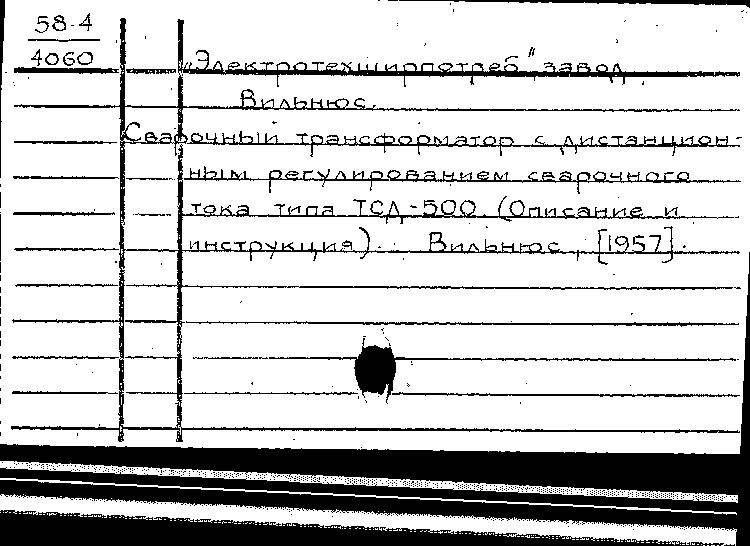 58-4
4060
„Электротехширпотреб", завод.
Вильнюс.
Сварочный трансформатор с дистанцион-
ным регулированием сварочного
тока типа ТСД-500. (Описание и
инструкция). Вильнюс, [1957].